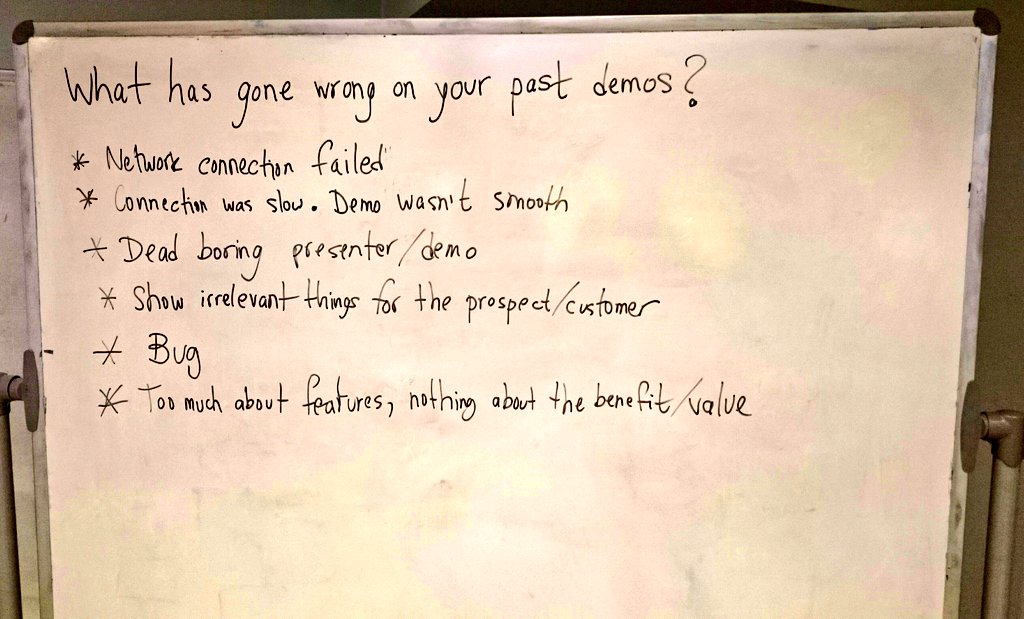 What has gone wrong on your past demos?
* Network connection failed
* Connection was slow. Demo wasn't smooth
* Dead boring presenter/demo
* Show irrelevant things for the prospect/customer
* Bug
* Too much about features, nothing about the benefit/value